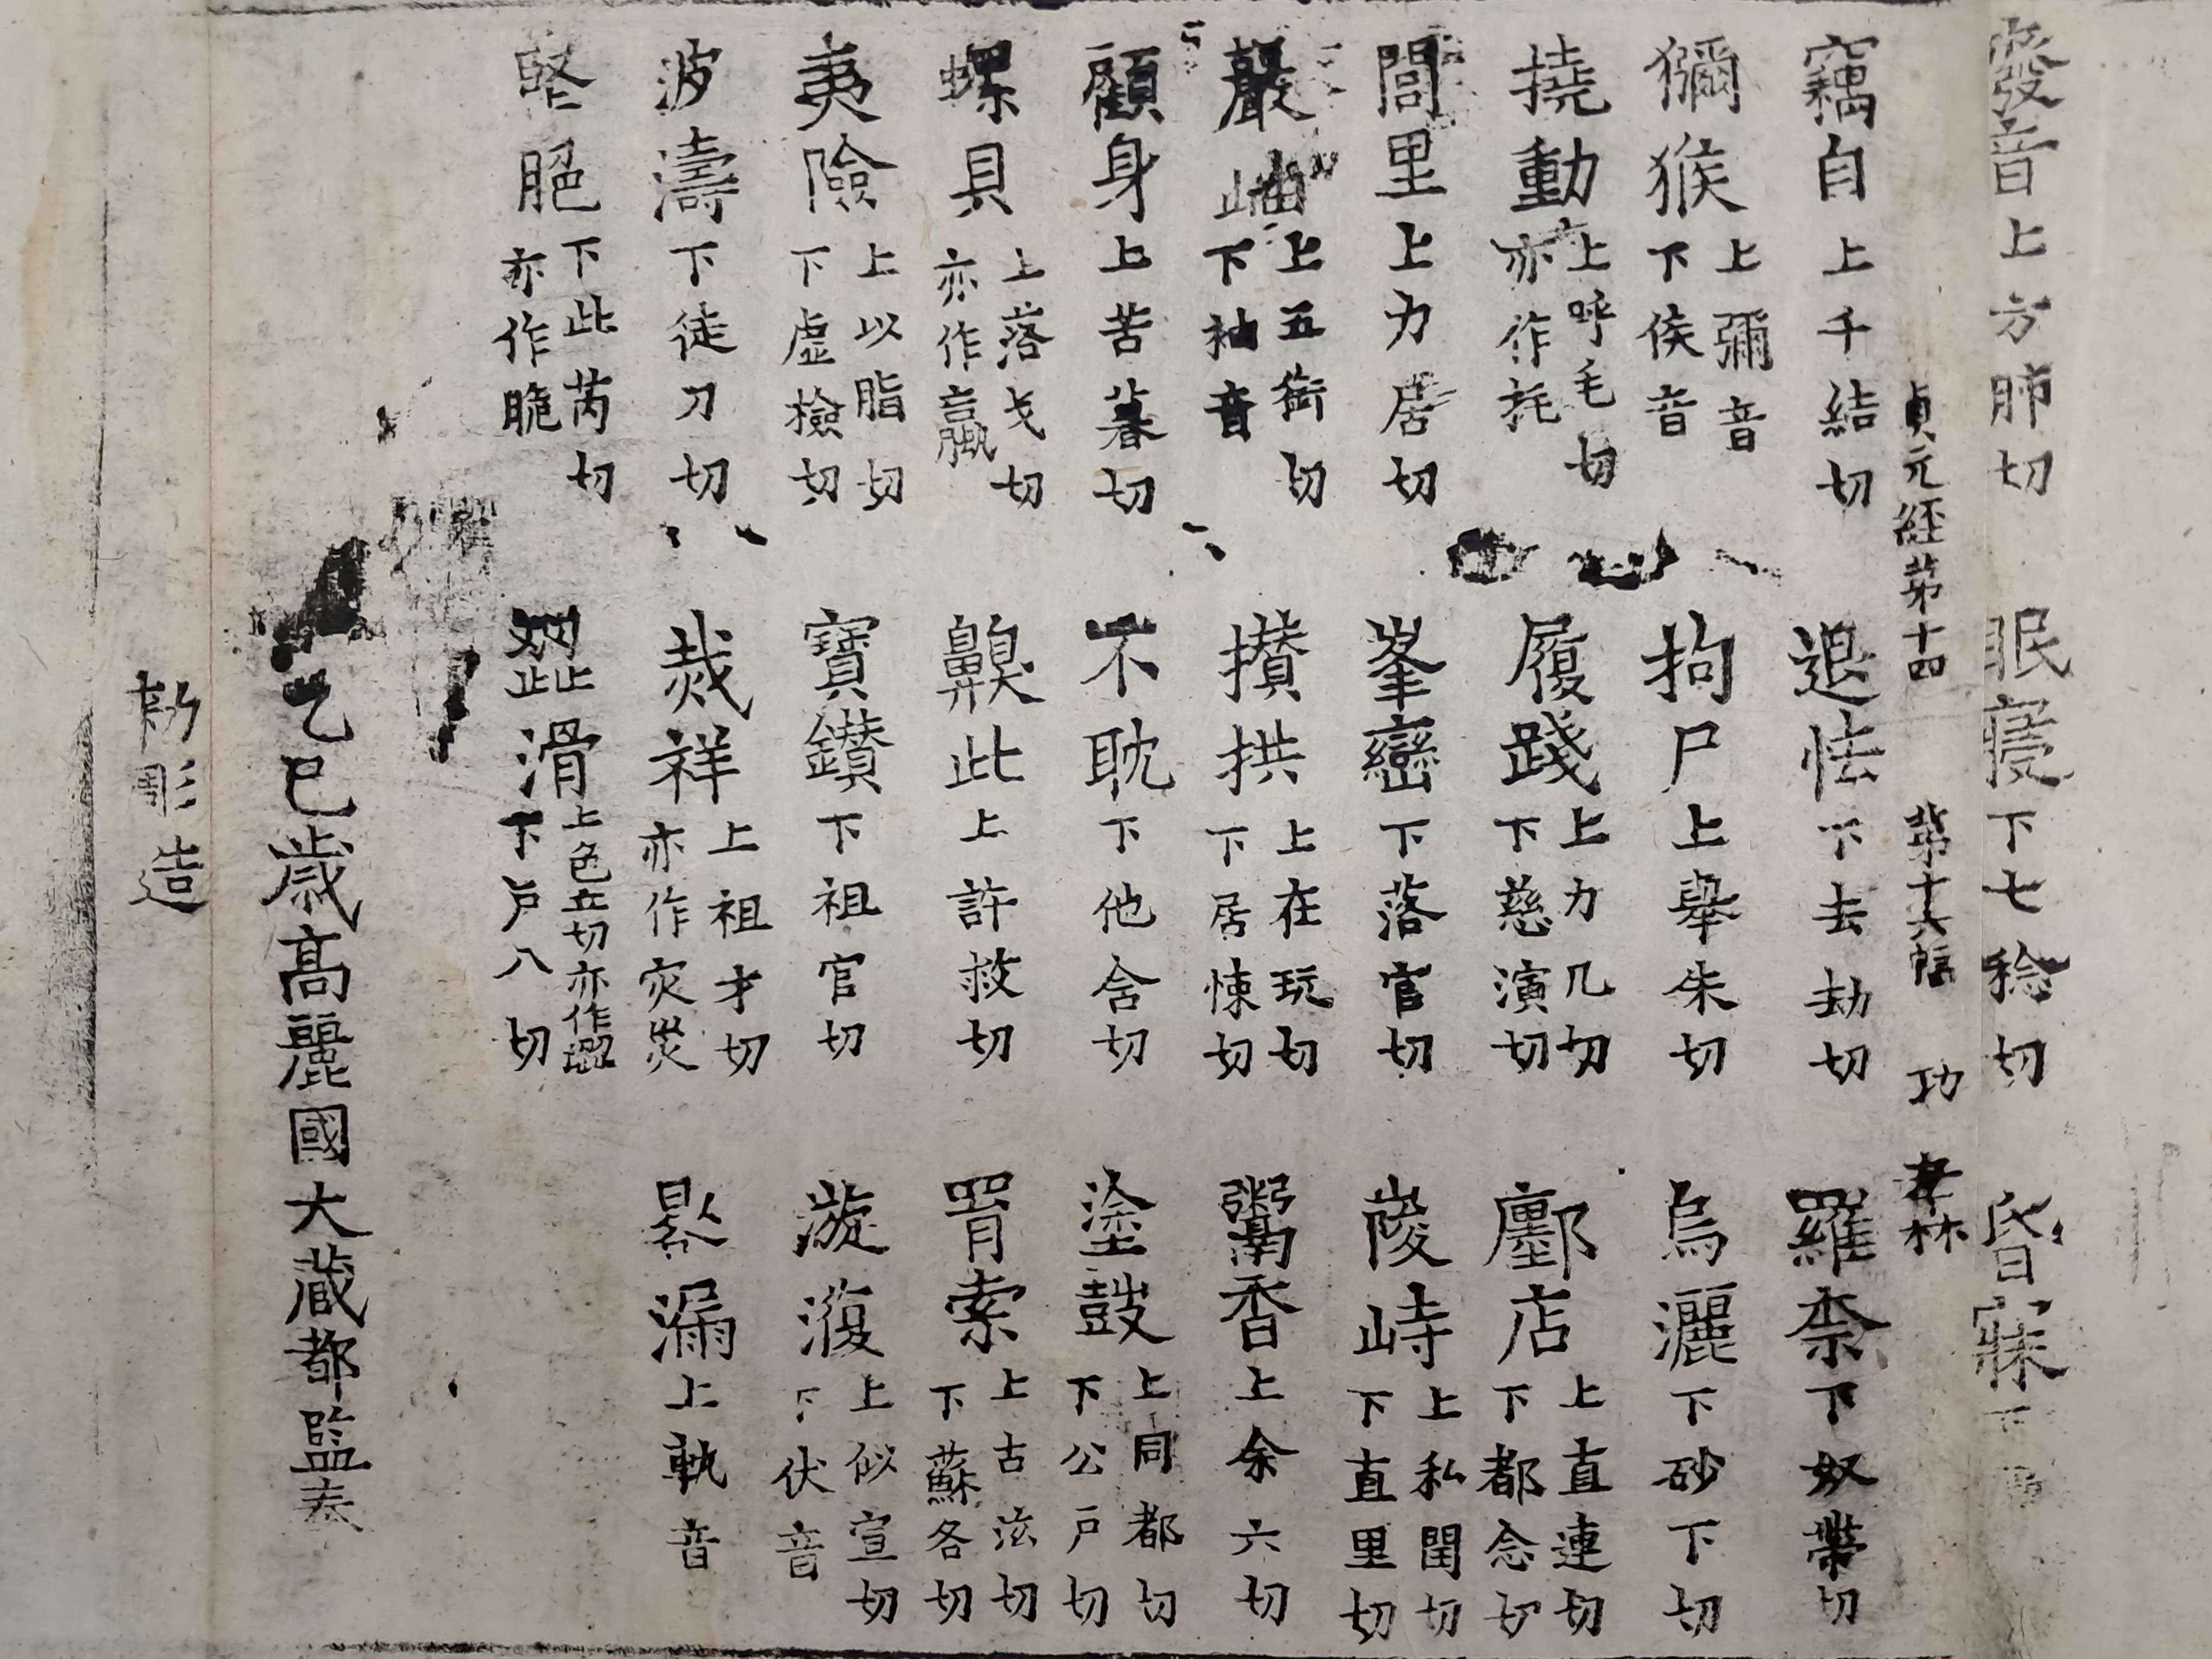 發音上方肺切 眠寑下七稔切 昏寐下
貞元經第十四 第十六幅 功 孝林
竊自上千結切 退怯下去劫切 羅柰下奴帶切
獼猴上彌音下侯音 拘尸上舉朱切 烏灑下砂下切
撓動上呼毛切亦作秏 履踐上力几切下慈演切 鄽店上直連切下都念切
閭里上力居切 峯巒下落官切 崚峙上私閏切下直里切
巖岫上五銜切下袖音 攢拱上在玩切下居悚切 鬻香上余六切
顧身上苦暮切 不耽下他含切 塗鼓上同都切下公戶切
螺貝上落戈切亦作蠃 齅此上許救切 罥索上古泫切下蘇各切
夷險上以脂切下虛檢切 寶鑽下祖官切 漩澓上似宣切下伏音
波濤下徒刀切 烖祥上祖才切亦作灾災 漏上執音
堅脃下此芮切亦作脆 滑上色立切亦作下戶八切
乙巳歲高麗國大藏都監奉
勑彫造